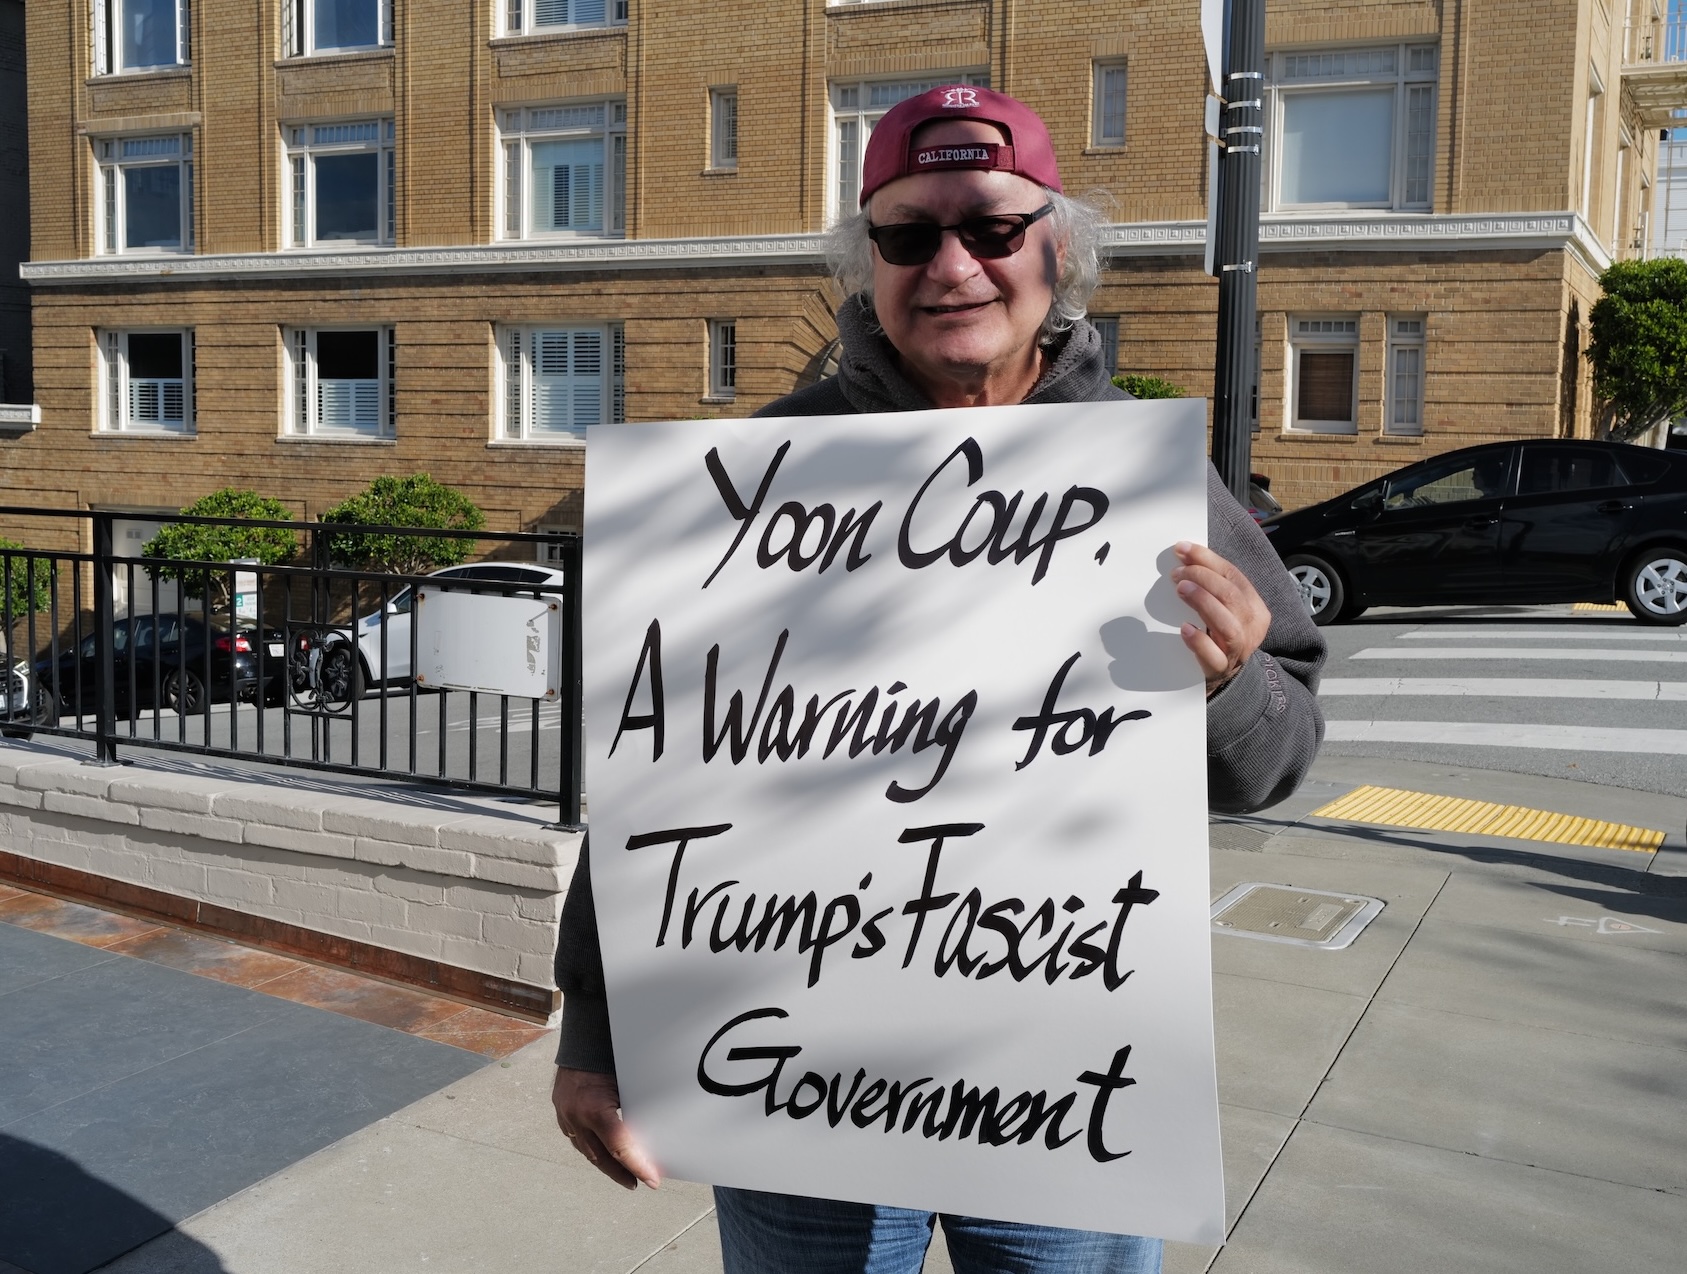 CALIFORNIA
Yoon Coup.
A Warning for
Trump's Fascist
Government